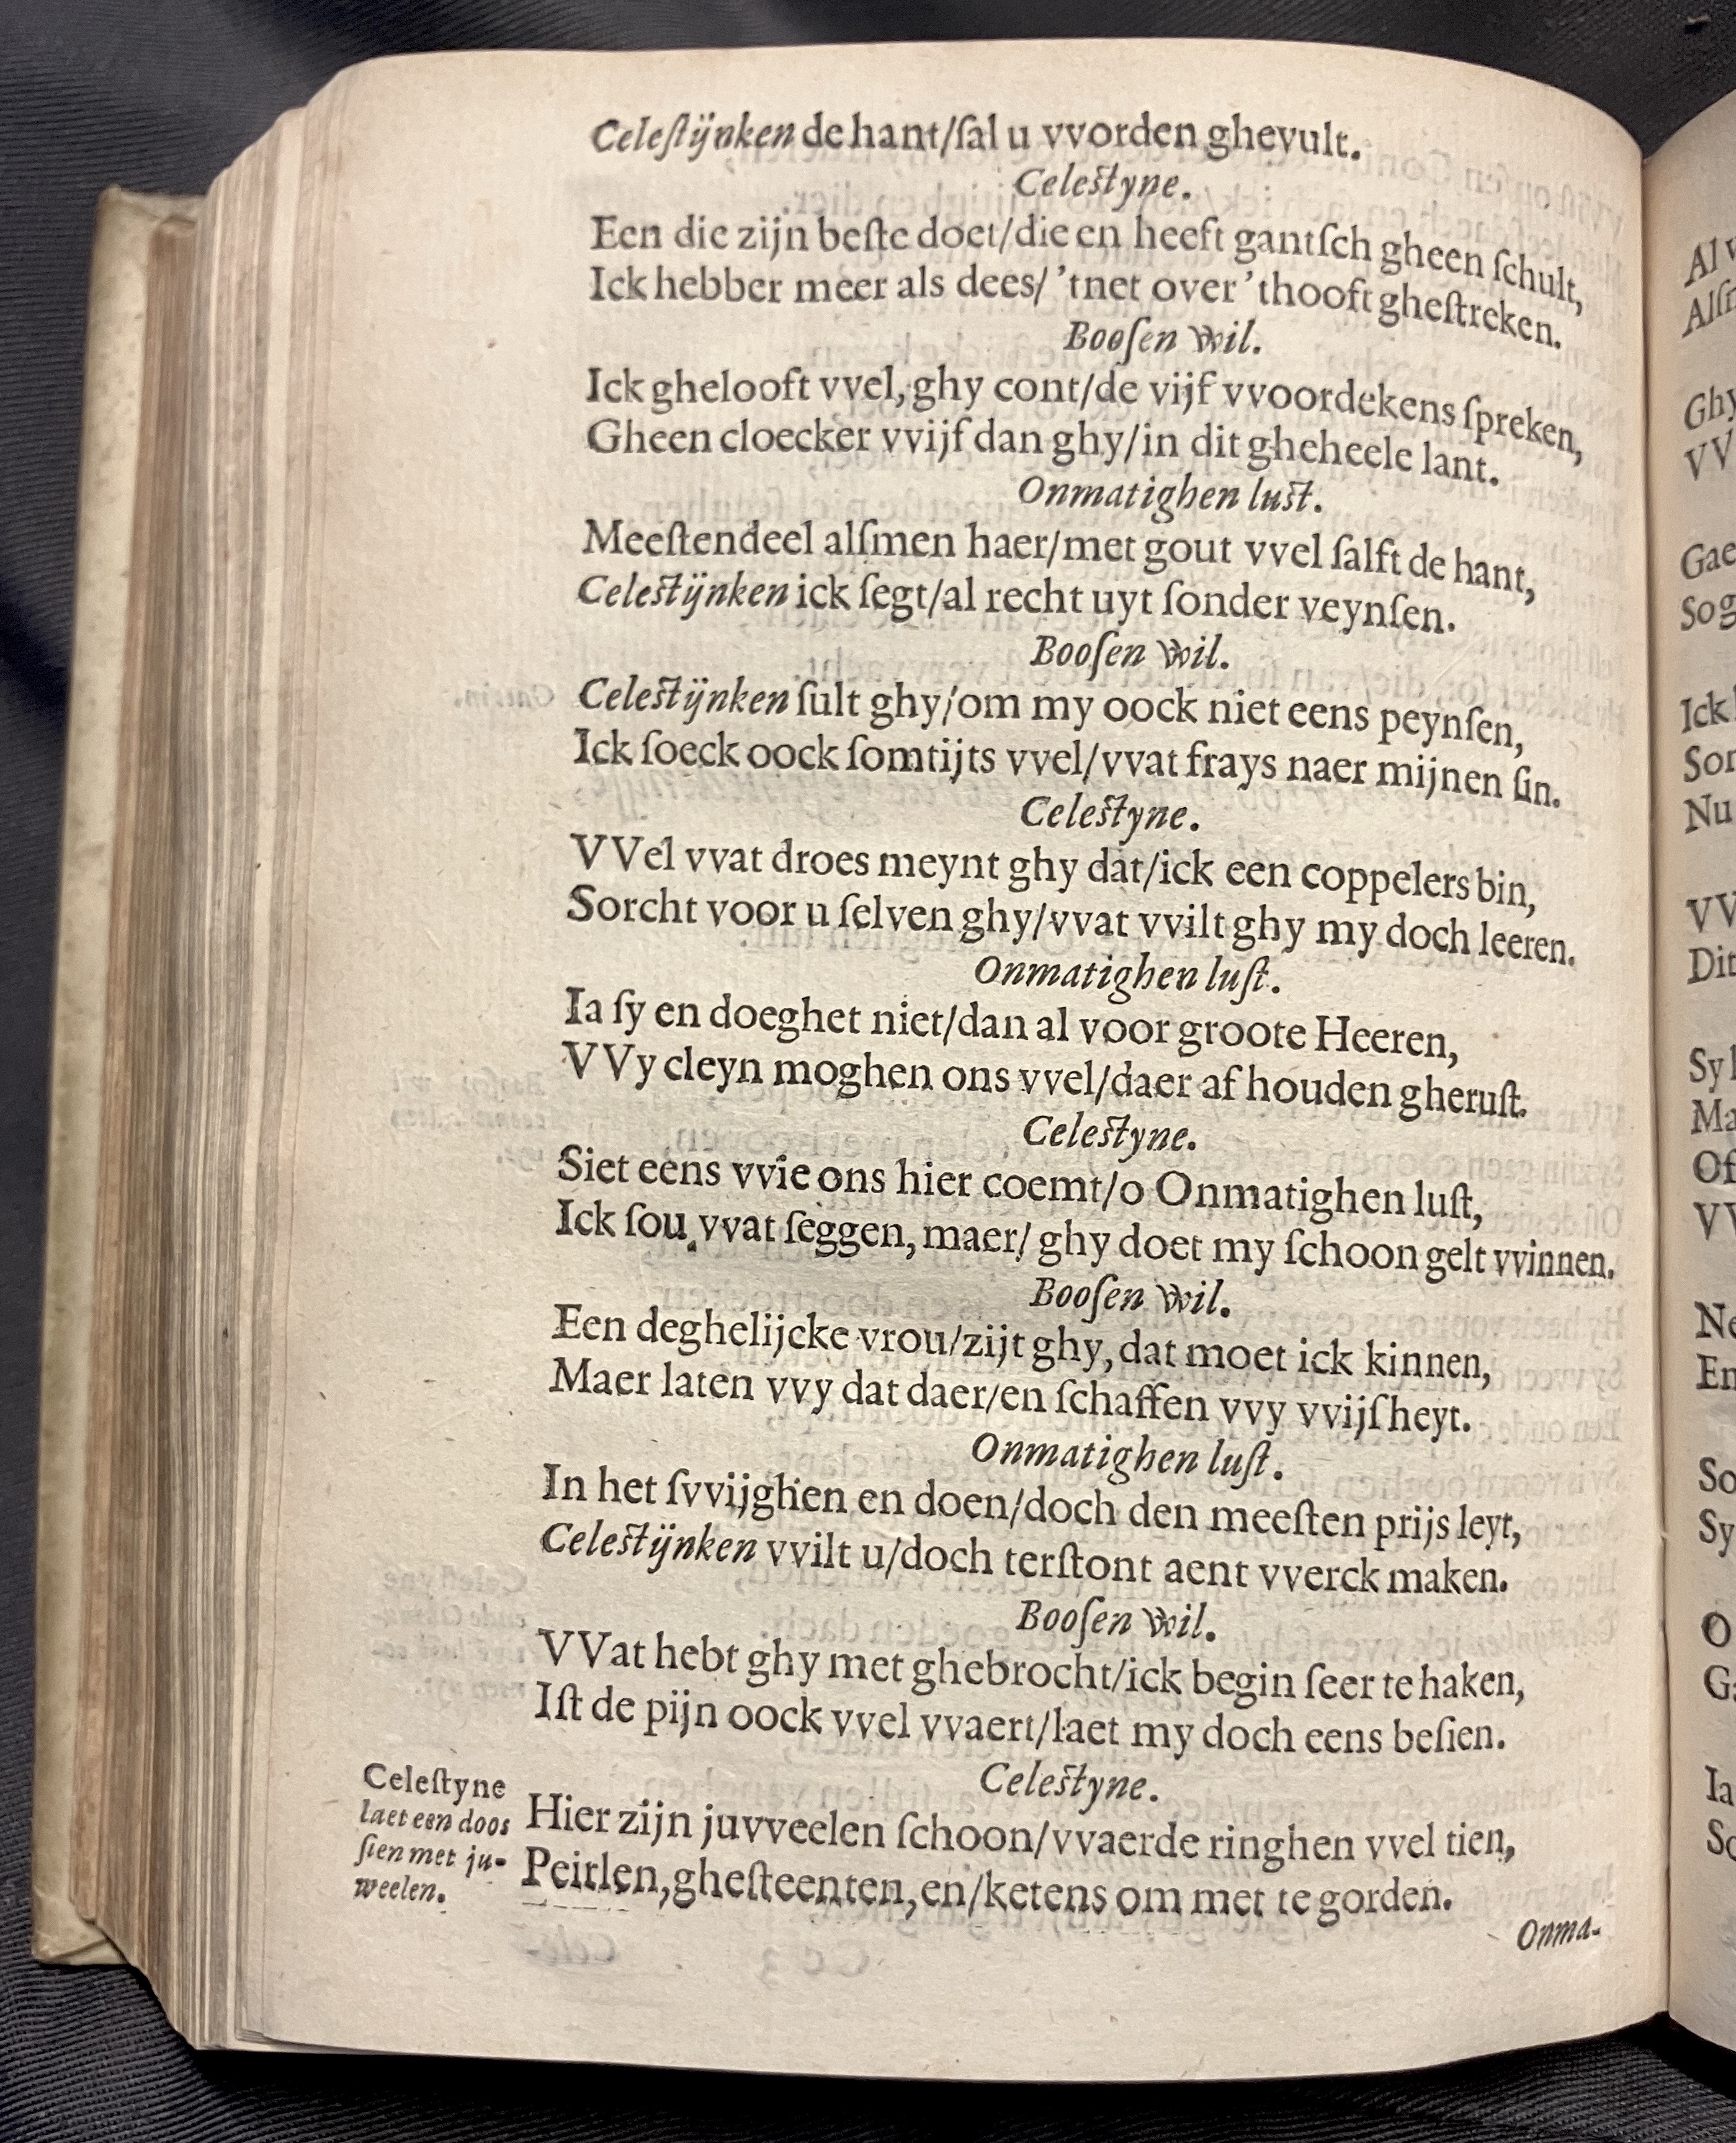 Celeſtijnken de hant/ſal u vvorden ghevult.
Celeſtyne.
Een die zijn beſte doet/die en heeft gantſch gheen ſchult,
Ick hebber meer als dees/ 'tnet over 'thooft gheſtreken.
Booſen wil.
Ick ghelooft vvel, ghy cont/de vijf vvoordekens ſpreken,
Gheen cloecker vvijf dan ghy/in dit gheheele lant.
Onmatighen luſt.
Meeſtendeel alſmen haer/met gout vvel ſalft de hant,
Celeſtijnken ick ſegt/al recht uyt ſonder veynſen.
Booſen wil.
Celeſtijnken ſult ghy/om my oock niet eens peynſen,
Ick ſoeck oock ſomtijts vvel/vvat frays naer mijnen ſin.
Celeſtyne.
VVel vvat droes meynt ghy dat/ick een coppelers bin,
Sorcht voor u ſelven ghy/vvat vvilt ghy my doch leeren.
Onmatighen luſt.
Ia ſy en doeghet niet/dan al voor groote Heeren,
VVy cleyn moghen ons vvel/daer af houden gheruſt.
Celeſtyne.
Siet eens vvie ons hier coemt/o Onmatighen luſt,
Ick ſou vvat ſeggen, maer/ ghy doet my ſchoon gelt vvinnen.
Booſen wil.
Een deghelijcke vrou/zijt ghy, dat moet ick kinnen,
Maer laten vvy dat daer/en ſchaffen vvy vvijſheyt.
Onmatighen luſt.
In het ſvvijghen en doen/doch den meeſten prijs leyt,
Celeſtijnken vvilt u/doch terſtont aent vverck maken.
Booſen wil.
VVat hebt ghy met ghebrocht/ick begin ſeer te haken,
Iſt de pijn oock vvel vvaert/laet my doch eens beſien.
Celeſtyne.
Celeſtyne
laet een doos
ſien met ju-
weelen.
Hier zijn juvveelen ſchoon/vvaerde ringhen vvel tien,
Peirlen, gheſteenten, en/ketens om met te gorden.
Onma-